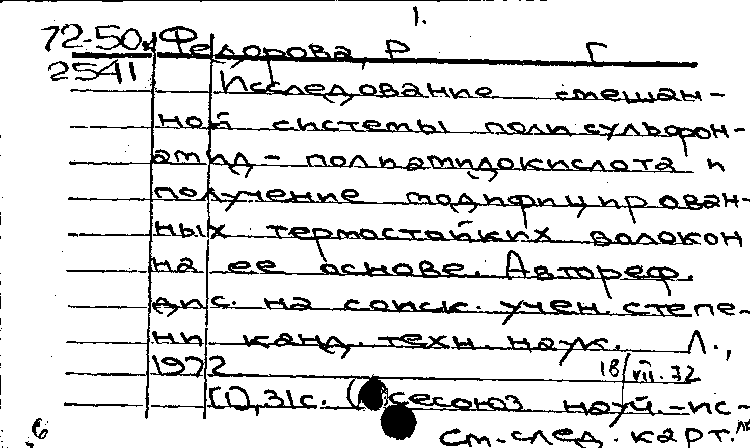 1.
72-50
2541
Федорова, Р Г
Исследование смешан-
ной системы полисульфон-
амид - полиамидокислота и
получение модифицирован-
ных термостойких волокон
на ее основе. Автореф.
дис. на соиск. учен. степе-
ни канд. техн. наук. Л.,
1972
18/VII.72
[1], 31 с. (Всесоюз науч.-ис-
См. след. карт.